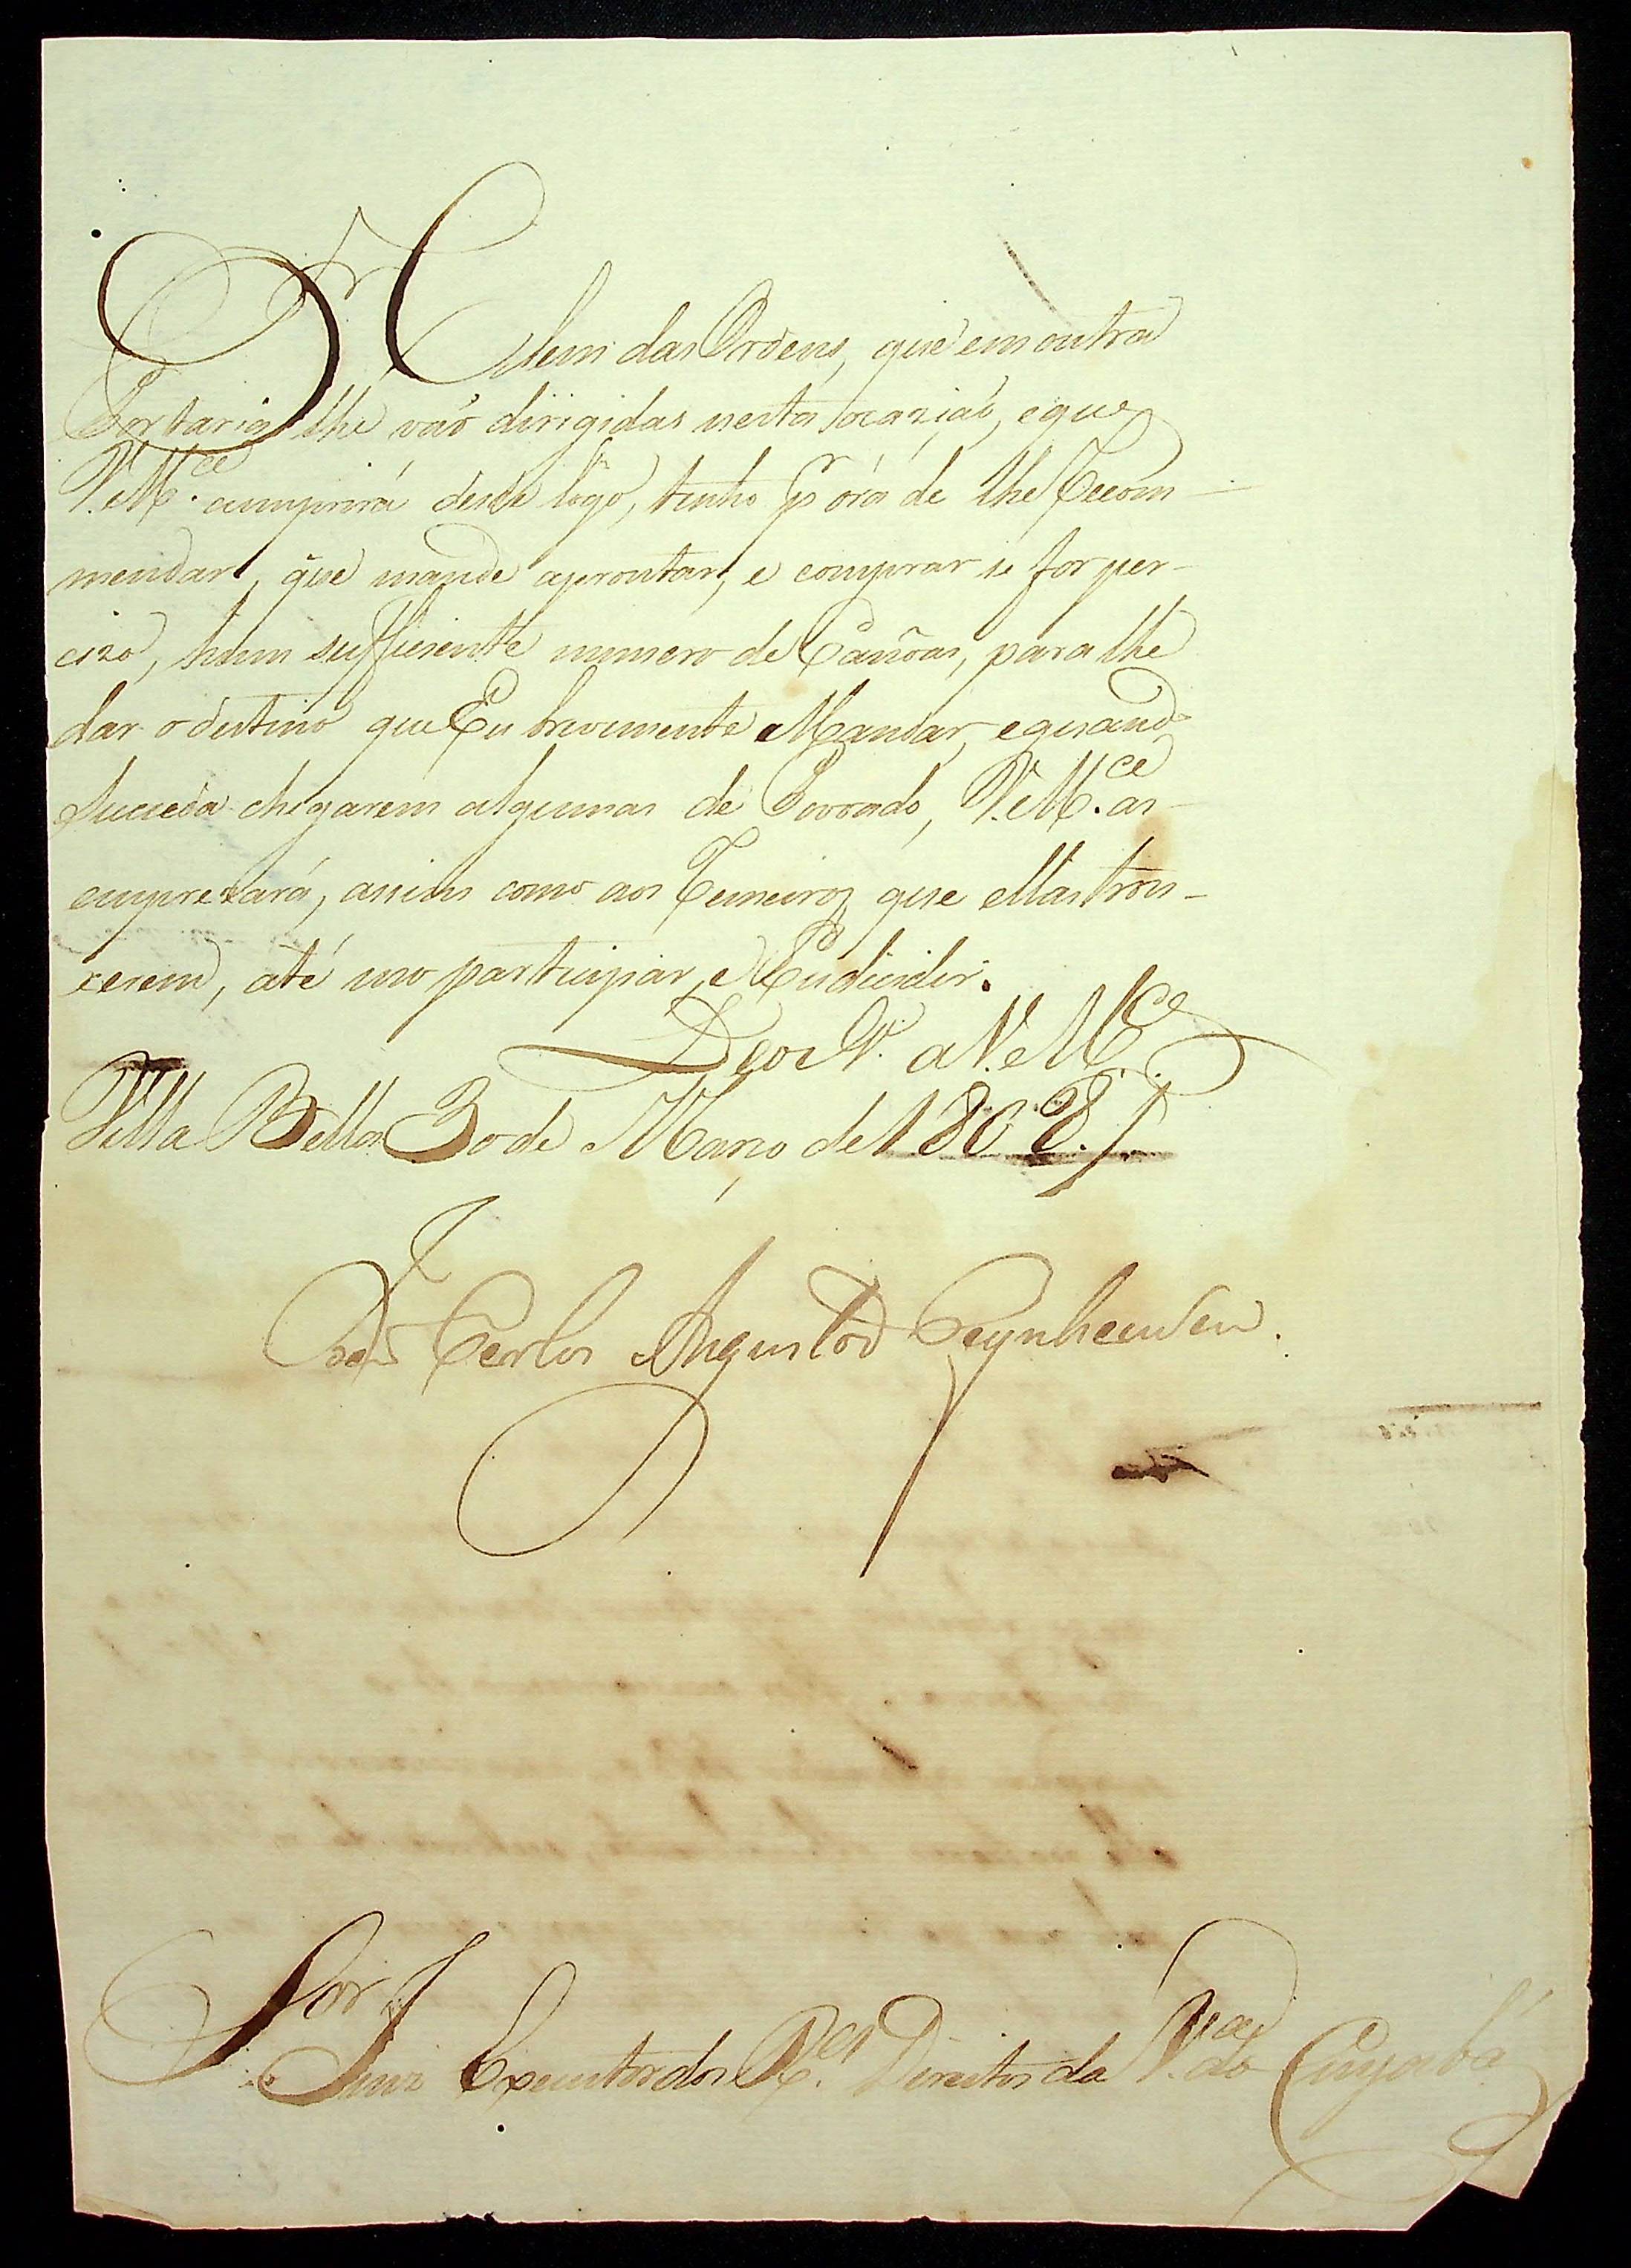 Alem das Ordens, que em outra
Portaria lhe vaõ dirigidas nesta ocaziaõ, e que
V. M.ce cumprirá desde logo, tenho p.r óra de lhe Recom-
mendar, que mande aprontar, e comprar se for per-
cizo, hum sufficiente numero de Canoas, para lhe
dar o destino que Eu brevemente Mandar, e quando
suceda chegarem algumas de Povoado, V. M.ce as
emprezará, assim como aos Remeiros que ellas trou-
xerem, até mo participar, e Eu dicidir.
Deos G.e a V. M.ce
Villa Bella 30 de Março de 1808.
João Carlos Augusto d'Oeynhausen.
S.or
Juiz Executor dos R.es Direitos da V.a do Cuyabá